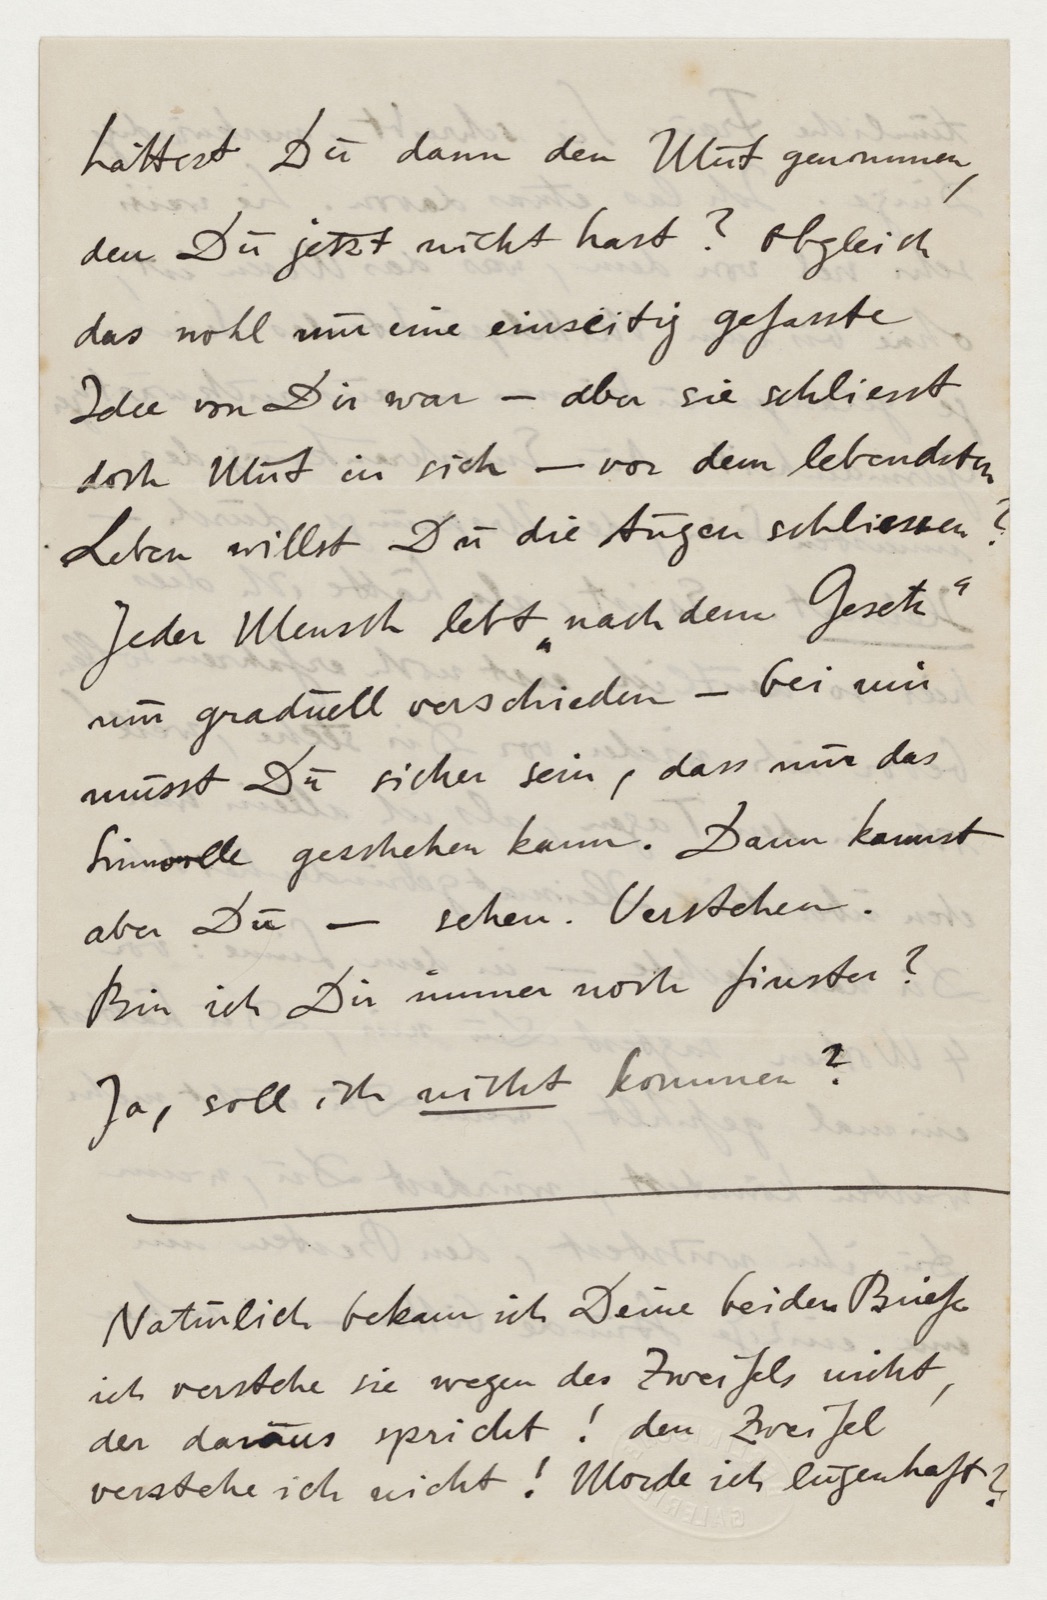 hättest Dū dann den Mūt genommen,
den Dū jetzt nicht hast? Obgleich
das wohl nūr eine einseitig gefasste
Idee von Dir war — aber sie schliesst
doch Mūt in sich — vor dem lebendsten
Leben willst Dū die Aūgen schliessen?
Jeder Mensch lebt „nach dem Gesetz“
nūr gradūell verschieden — bei mir
mūsst Dū sicher sein, dass nūr das
Sinnvolle geschehen kann. Dann kannst
aber Dū — sehen. Verstehen.
Bin ich Dir immer noch finster?
Ja, soll ich nicht kommen?
Natūrlich bekam ich Deine beiden Briefe
ich verstehe sie wegen des Zweifels nicht,
der daraūs spricht! den Zweifel
verstehe ich nicht! Würde ich lügenhaft?